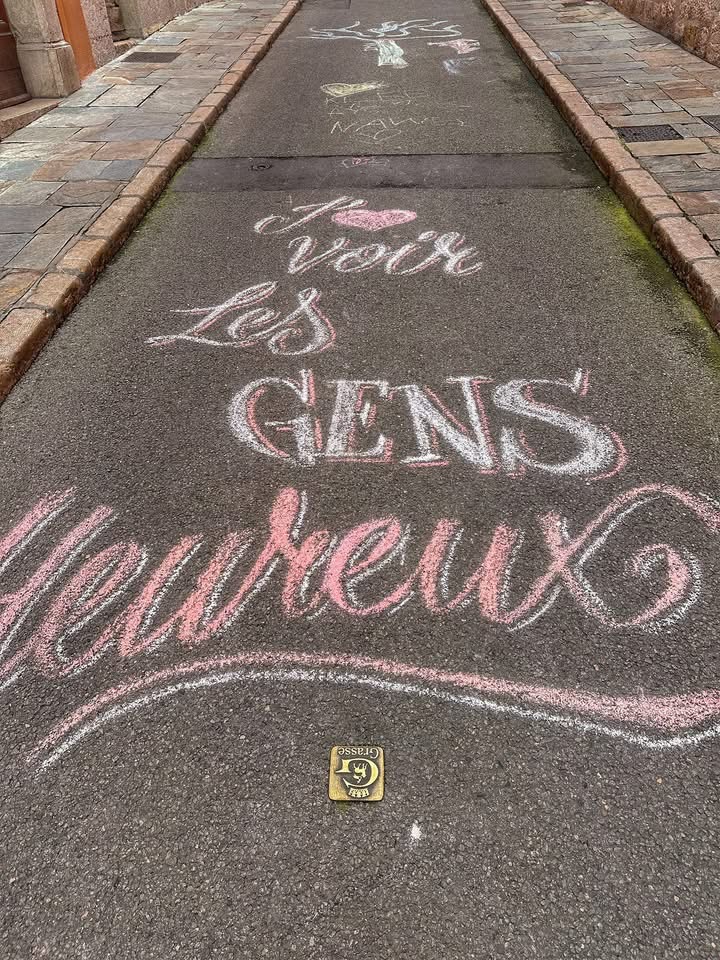 J'❤
voir
Les
GENS
Heureux
Grasse